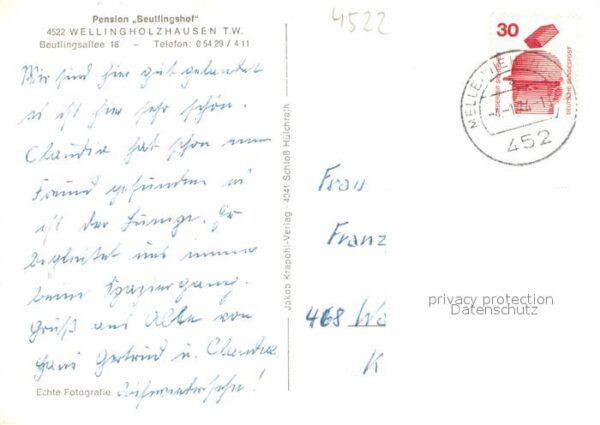 Pension „Beutlingshof"
4522 WELLINGHOLZHAUSEN T.W.
Beutlingsallee 18 - Telefon: 0 54 29 / 4 11
4522
30
DEUTSCHE BUNDESPOST
MELLE
452
Wir sind hier gut gelandet
es ist hier sehr schön.
Claudia hat schon einen
Freund gefunden es
ist der Junge. Er
begleitet uns immer
beim Spaziergang.
Gruß an Alle von
Hans Gertrud u. Claudia
Echte Fotografie Aufwiedersehn!
Jakob Krapohl-Verlag · 4041 Schloß Hülchrath
Frau
Franz
468 Wa
K
privacy protection
Datenschutz